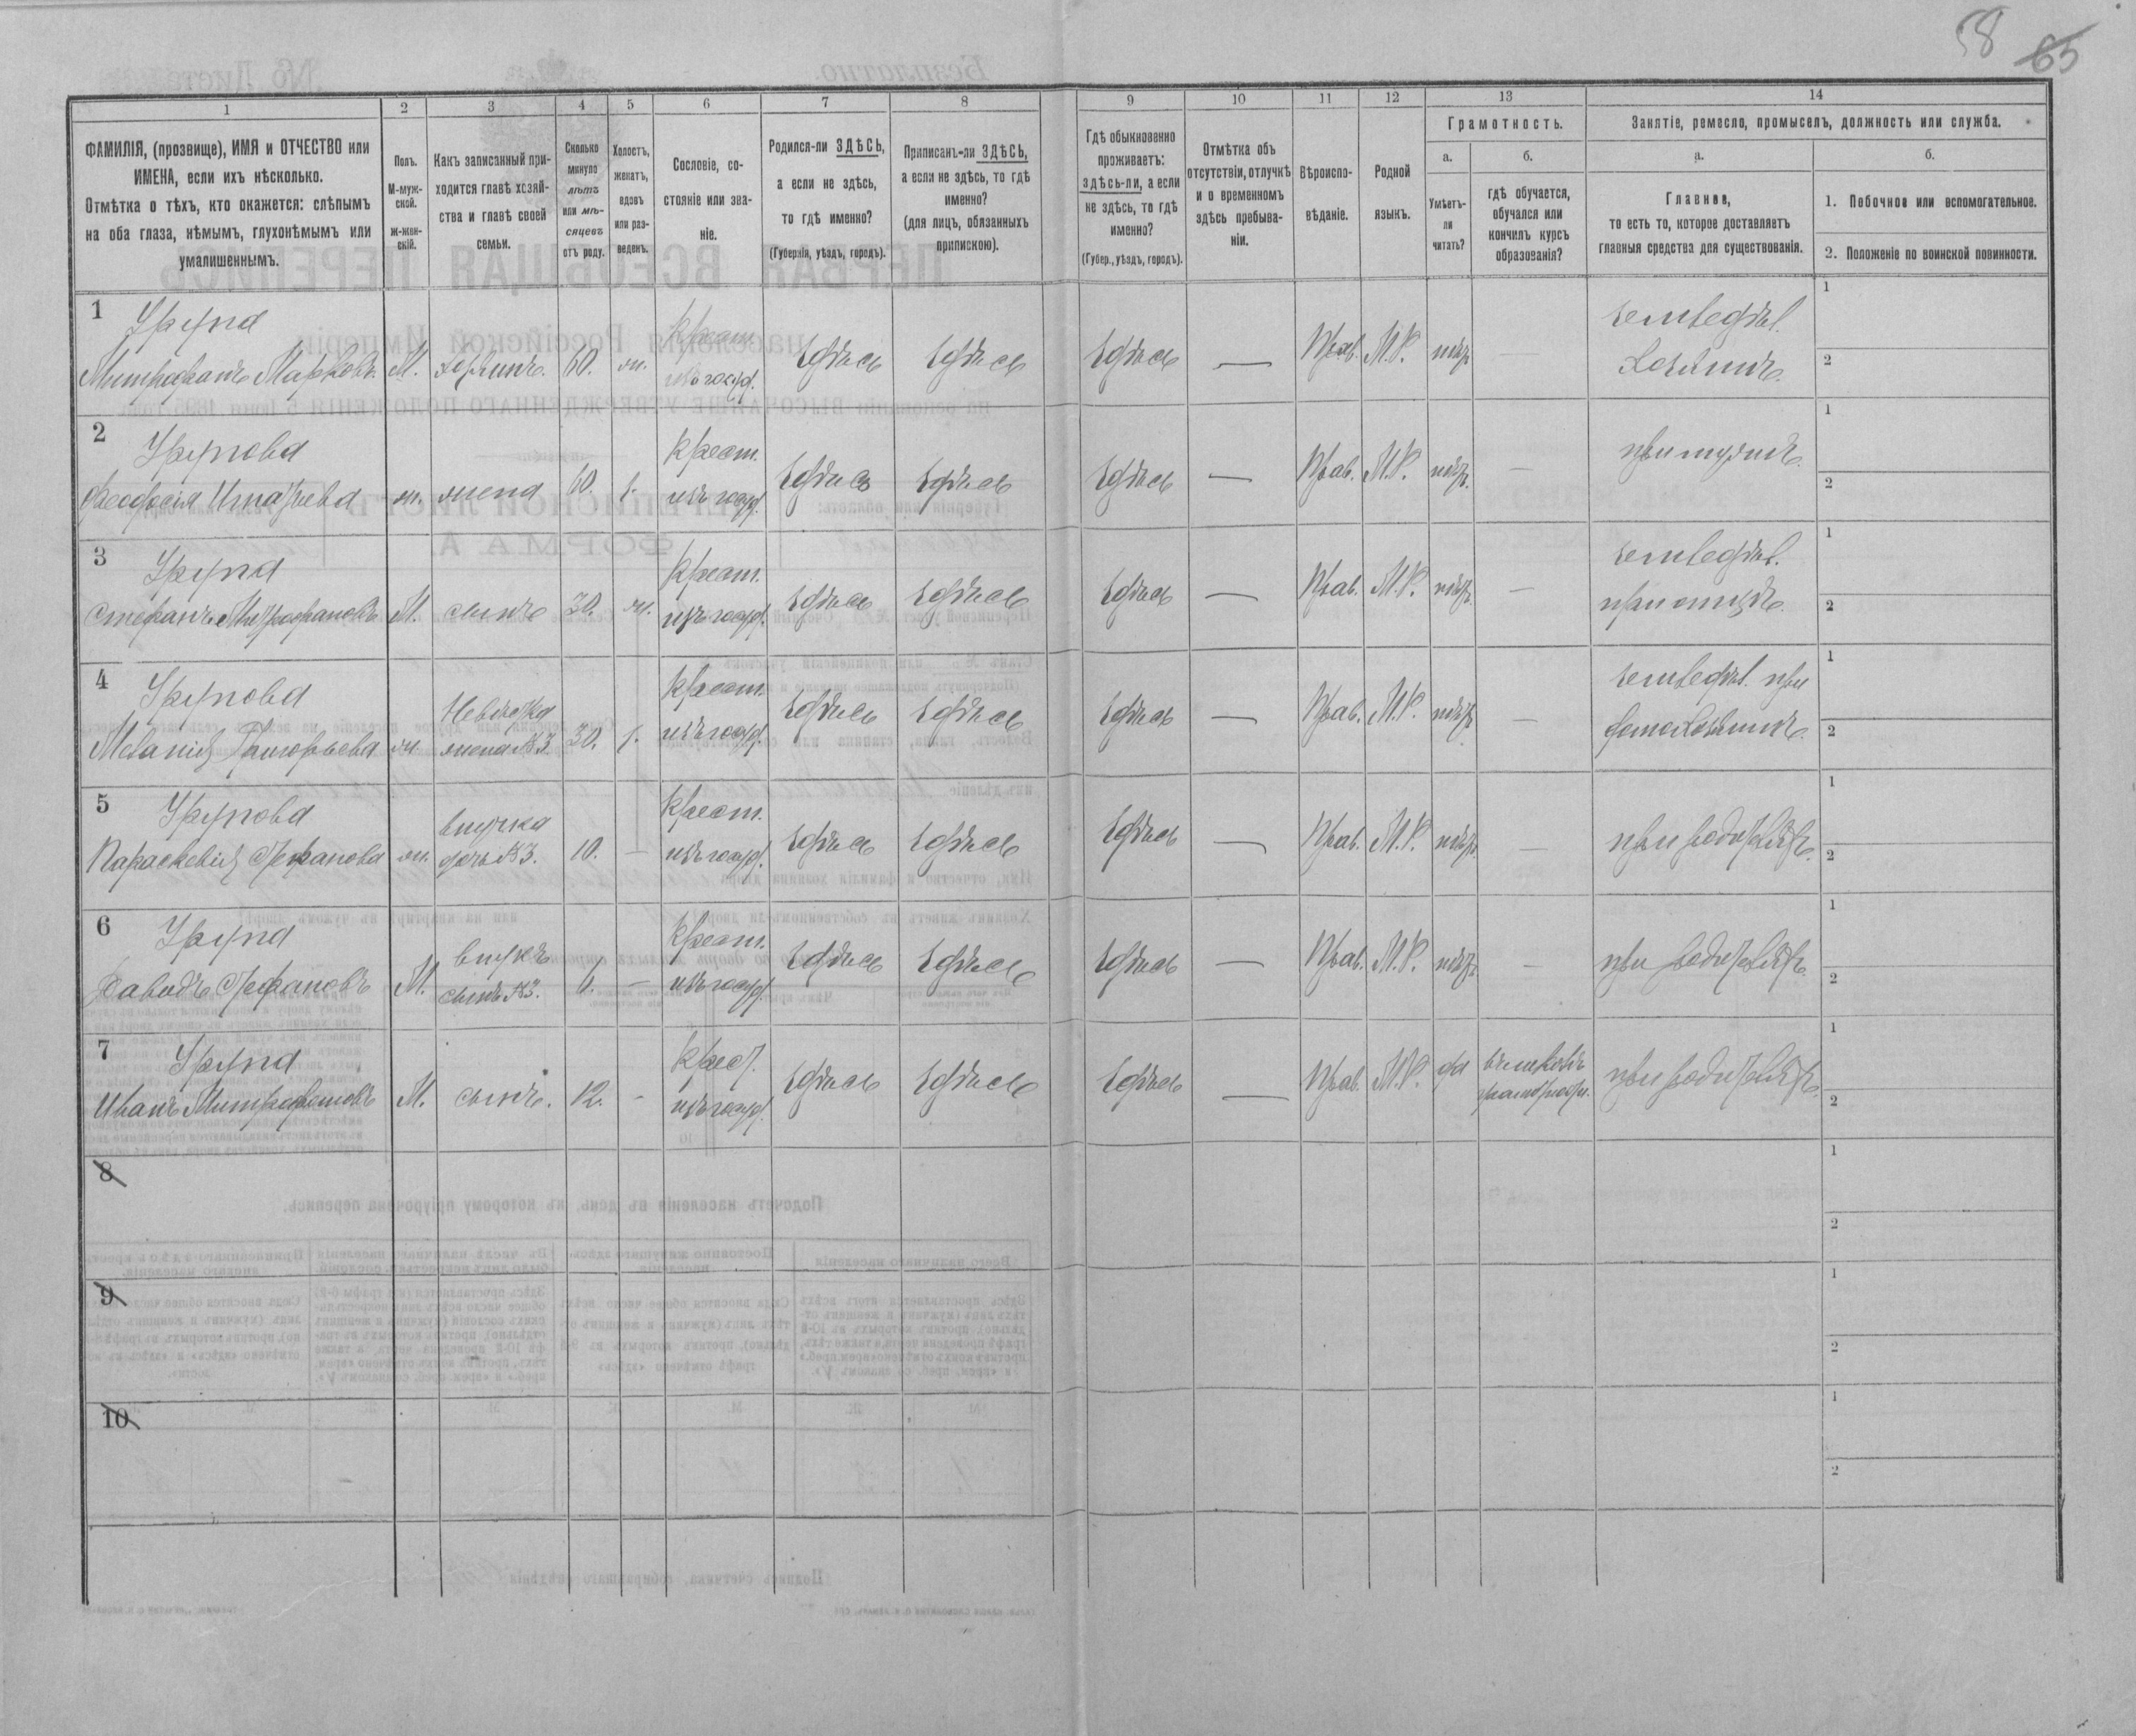 58 65
1 2 3 4 5 6 7 8 9 10 11 12 13 14
ФАМИЛІЯ, (прозвище), ИМЯ и ОТЧЕСТВО или
ИМЕНА, если ихъ нѣсколько.
Отмѣтка о тѣхъ, кто окажется: слѣпымъ
на оба глаза, нѣмымъ, глухонѣмымъ или
умалишеннымъ.
Полъ.
М-муж-
ской.
Ж-жен-
скій.
Какъ записанный при-
ходится главѣ хозяй-
ства и главѣ своей
семьи.
Сколько
минуло
лѣтъ
или мѣ-
сяцевъ
отъ роду.
Холостъ,
женатъ,
вдовъ
или раз-
веденъ.
Сословіе, со-
стояніе или зва-
ніе.
Родился-ли ЗДѢСЬ,
а если не здѣсь,
то гдѣ именно?
(Губернія, уѣздъ, городъ).
Приписанъ-ли ЗДѢСЬ,
а если не здѣсь, то гдѣ
именно?
(для лицъ, обязанныхъ
припискою).
Гдѣ обыкновенно
проживаетъ:
здѣсь-ли, а если
не здѣсь, то гдѣ
именно?
(Губер., уѣздъ, городъ).
Отмѣтка объ
отсутствіи, отлучкѣ
и о временномъ
здѣсь пребыва-
ніи.
Вѣроиспо-
вѣданіе.
Родной
языкъ.
Грамотность.
а.
Умѣетъ-
ли
читать?
б.
гдѣ обучается,
обучался или
кончилъ курсъ
образованія?
Занятіе, ремесло, промыселъ, должность или служба.
а.
Главное,
то есть то, которое доставляетъ
главныя средства для существованія.
б.
1. Побочное или вспомогательное.
2. Положеніе по воинской повинности.
1
Урупа
Митрофанъ Марковъ М. хозяинъ. 60. ж. Крест. изъ госуд. здѣсь здѣсь здѣсь — Прав. М.Р. нѣтъ — земледѣл. Хозяинъ.
1
2
2
Урупова
Феодосія Игнатьева ж. жена 60. Крест. изъ госуд. здѣсь здѣсь здѣсь — Прав. М.Р. нѣтъ — при мужѣ.
1
2
3
Урупа
Стефанъ Митрофановъ М. сынъ 30. ж. Крест. изъ госуд. здѣсь здѣсь здѣсь — Прав. М.Р. нѣтъ — земледѣл. при отцѣ.
1
2
4
Урупова
Меланія Григорьева ж. Невѣстка жена №3. 30. Крест. изъ госуд. здѣсь здѣсь здѣсь — Прав. М.Р. нѣтъ — земледѣл. при
1
2
5
Урупова
Параскевія Стефанова ж. внучка дочь №3. 10. — Крест. изъ госуд. здѣсь здѣсь здѣсь — Прав. М.Р. нѣтъ — при родителяхъ.
1
2
6
Урупа
Давидъ Стефановъ М. внукъ сынъ №3. 6. — Крест. изъ госуд. здѣсь здѣсь здѣсь — Прав. М.Р. нѣтъ — при родителяхъ.
1
2
7
Урупа
Иванъ Митрофановъ М. сынъ. 12. - Крест. изъ госуд. здѣсь здѣсь здѣсь — Прав. М.Р. да при родителяхъ.
1
2
8
1
2
9
1
2
10
1
2